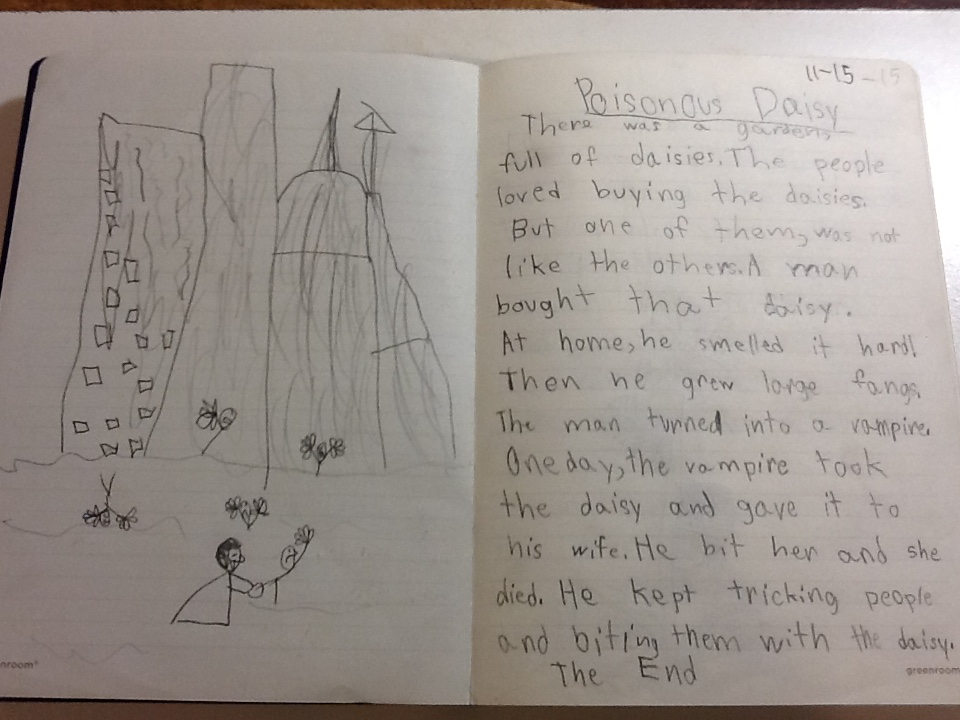 11-15-15
Poisonous Daisy
There was a gardens,
full of daisies. The people
loved buying the daisies.
But one of them, was not
like the others. A man
bought that daisy.
At home, he smelled it hard!
Then he grew large fangs.
The man turned into a vampire.
One day, the vampire took
the daisy and gave it to
his wife. He bit her and she
died. He kept tricking people
and biting them with the daisy.
The End
nroom®
greenroom